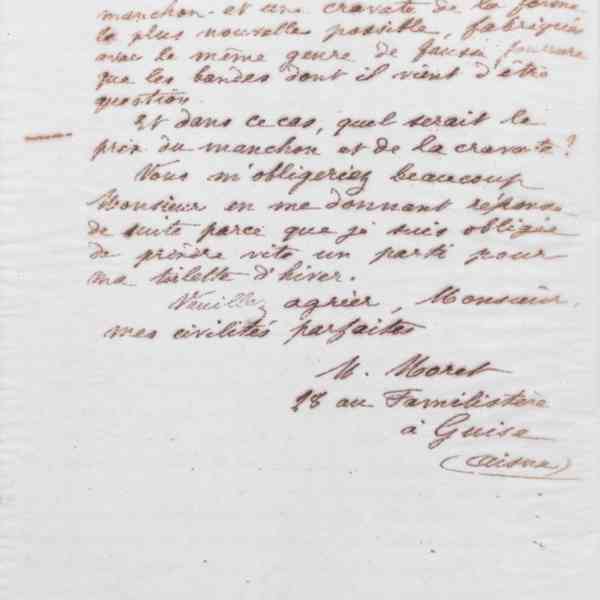 manchon et une cravate de la forme
la plus nouvelle possible, fabriqués
avec le même genre de fausse fourrure
que les bandes dont il vient d'être
question.
Et dans ce cas, quel serait le
prix du manchon et de la cravate ?
Vous m'obligeriez beaucoup
Monsieur en me donnant réponse
de suite parce que je suis obligée
de prendre vite un parti pour
ma toilette d'hiver.
Veuillez agréer, Monsieur,
mes civilités parfaites
M. Moret
28 au Familistère
à Guise
(Aisne)